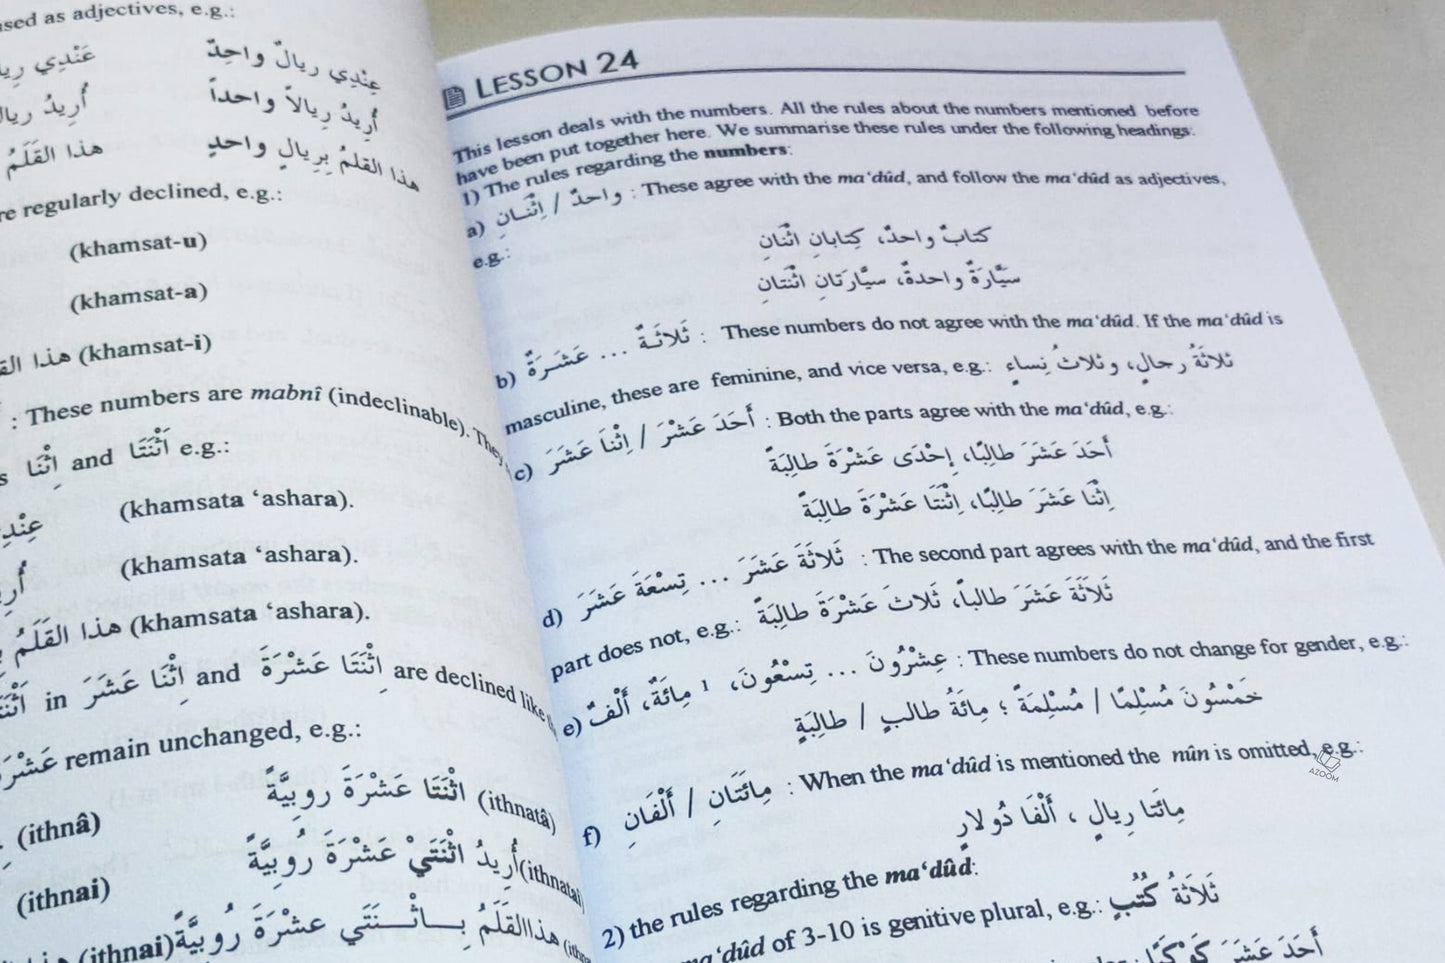 used as adjectives, e.g.:
عِنْدِي ريالٌ واحِدٌ
عَنْدِي
أُرِيدُ رِيالاً واحداً
أُرِيدُ
هذا القلمُ بِرِيالٍ واحدٍ
هذا القَلَمُ
regularly declined, e.g.:
(khamsat-u)
(khamsat-a)
هذا (khamsat-i)
: These numbers are mabnî (indeclinable). They
إِثْنَا and اثْنَتَا e.g.:
(khamsata ‘ashara).
(khamsata ‘ashara).
هذا القَلَمُ (khamsata ‘ashara).
in إِثْنَا عَشَرَ and إِثْنَتَا عَشْرَةَ are declined like
عَشْرَ remain unchanged, e.g.:
(ithnâ) اثْنَتَا عَشْرَةَ روبِيَّةً (ithnatâ)
(ithnai) أُرِيدُ اثْنَتَيْ عَشْرَةَ رُوبِيَّةً (ithnatai)
(ithnai) هذا القَلَمُ بِـاثْـنَتَي عشْرَةَ رُوبِيَّةً
LESSON 24
This lesson deals with the numbers. All the rules about the numbers mentioned before
have been put together here. We summarise these rules under the following headings:
1) The rules regarding the numbers:
a) واحدٌ / اِثْنَـانِ : These agree with the ma‘dûd, and follow the ma‘dûd as adjectives,
e.g.: كتابٌ واحدٌ، كِتابانِ اثْنَانِ
سَيَّارَةٌ واحدةٌ، سيَّارَتانِ اثْنَتانِ
b) ثَلاثَـةٌ ... عَشَـرَةٌ : These numbers do not agree with the ma‘dûd. If the ma‘dûd is
masculine, these are feminine, and vice versa, e.g.: ثلاثَةُ رِجالٍ، وثلاثُ نِساءٍ
c) أَحَدَ عَشَرَ / اِثْنَا عَشَرَ : Both the parts agree with the ma‘dûd, e.g.:
أَحَدَ عَشَرَ طالِبًا، إِحْدَى عَشْرَةَ طالِبَةً
اِثْنَا عَشَرَ طالِبًا، اِثْنَتَا عَشْرَةَ طالِبَةً
d) ثَلاثَةَ عَشَرَ ... تِسْعَةَ عَشَرَ : The second part agrees with the ma‘dûd, and the first
part does not, e.g.: ثَلاثَةَ عَشَرَ طالباً، ثَلاثَ عَشْرَةَ طالِبَةً
e) عِشْرُونَ ... تِسْعُونَ، ١ مِائَةٌ، أَلْفٌ : These numbers do not change for gender, e.g.:
خَمْسُونَ مُسْلِمًا / مُسْلِمَةً ؛ مِائَةُ طالبٍ / طالِبَةٍ
f) مِائَتَانِ / أَلْفَانِ : When the ma‘dûd is mentioned the nûn is omitted, e.g.:
مِائَتا رِيالٍ ، أَلْفَا دُولارٍ
2) the rules regarding the ma‘dûd:
ma‘dûd of 3-10 is genitive plural, e.g.: ثَلاثَةُ كُتُبٍ
أَحَدَ عَشَرَ كَوْكَبًا
AZOOM